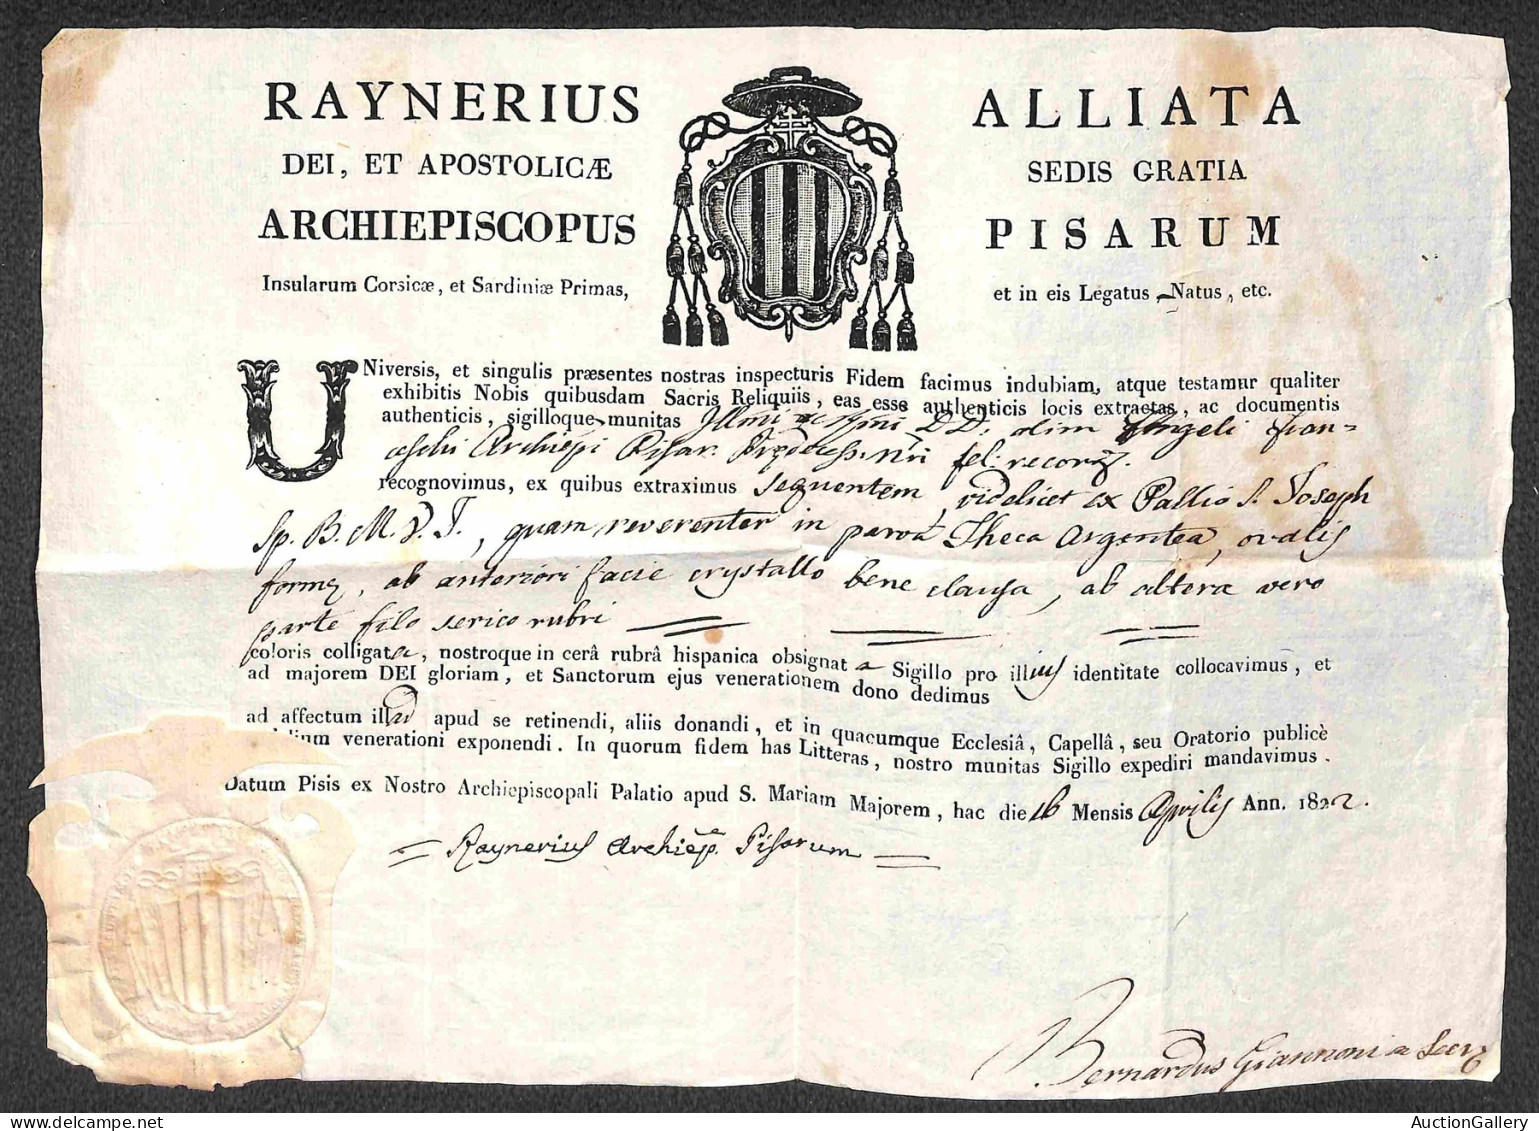 RAYNERIUS ALLIATA
DEI, ET APOSTOLICÆ SEDIS GRATIA
ARCHIEPISCOPUS PISARUM
Insularum Corsicæ, et Sardiniæ Primas, et in eis Legatus Natus, etc.
UNiversis, et singulis præsentes nostras inspecturis Fidem facimus indubiam, atque testamur qualiter
exhibitis Nobis quibusdam Sacris Reliquiis, eas esse authenticis locis extractas, ac documentis
authenticis, sigilloque munitas Illmi ac Rmi DD. olim Angeli Fran-
ceschi Archiepi Pisar. Prædecess. Nri fel: recor.
recognovimus, ex quibus extraximus sequentem, videlicet ex Pallio S. Joseph
Sp. B. M. V. I., quam reverenter in parva Theca Argentea, ovalis
formę, ab anteriori facie crystallo bene clausa, ab altera vero
parte filo serico rubri
coloris colligata, nostroque in cerâ rubrâ hispanica obsignata Sigillo pro illius identitate collocavimus, et
ad majorem DEI gloriam, et Sanctorum ejus venerationem dono dedimus
ad affectum illud apud se retinendi, aliis donandi, et in quacumque Ecclesiâ, Capellâ, seu Oratorio publicè
venerationi exponendi. In quorum fidem has Litteras, nostro munitas Sigillo expediri mandavimus.
Datum Pisis ex Nostro Archiepiscopali Palatio apud S. Mariam Majorem, hac die 16 Mensis Aprilis Ann. 1822.
Raynerius Archiep. Pisarum
Bernardus Giannoni a Secr
AuctionGallery